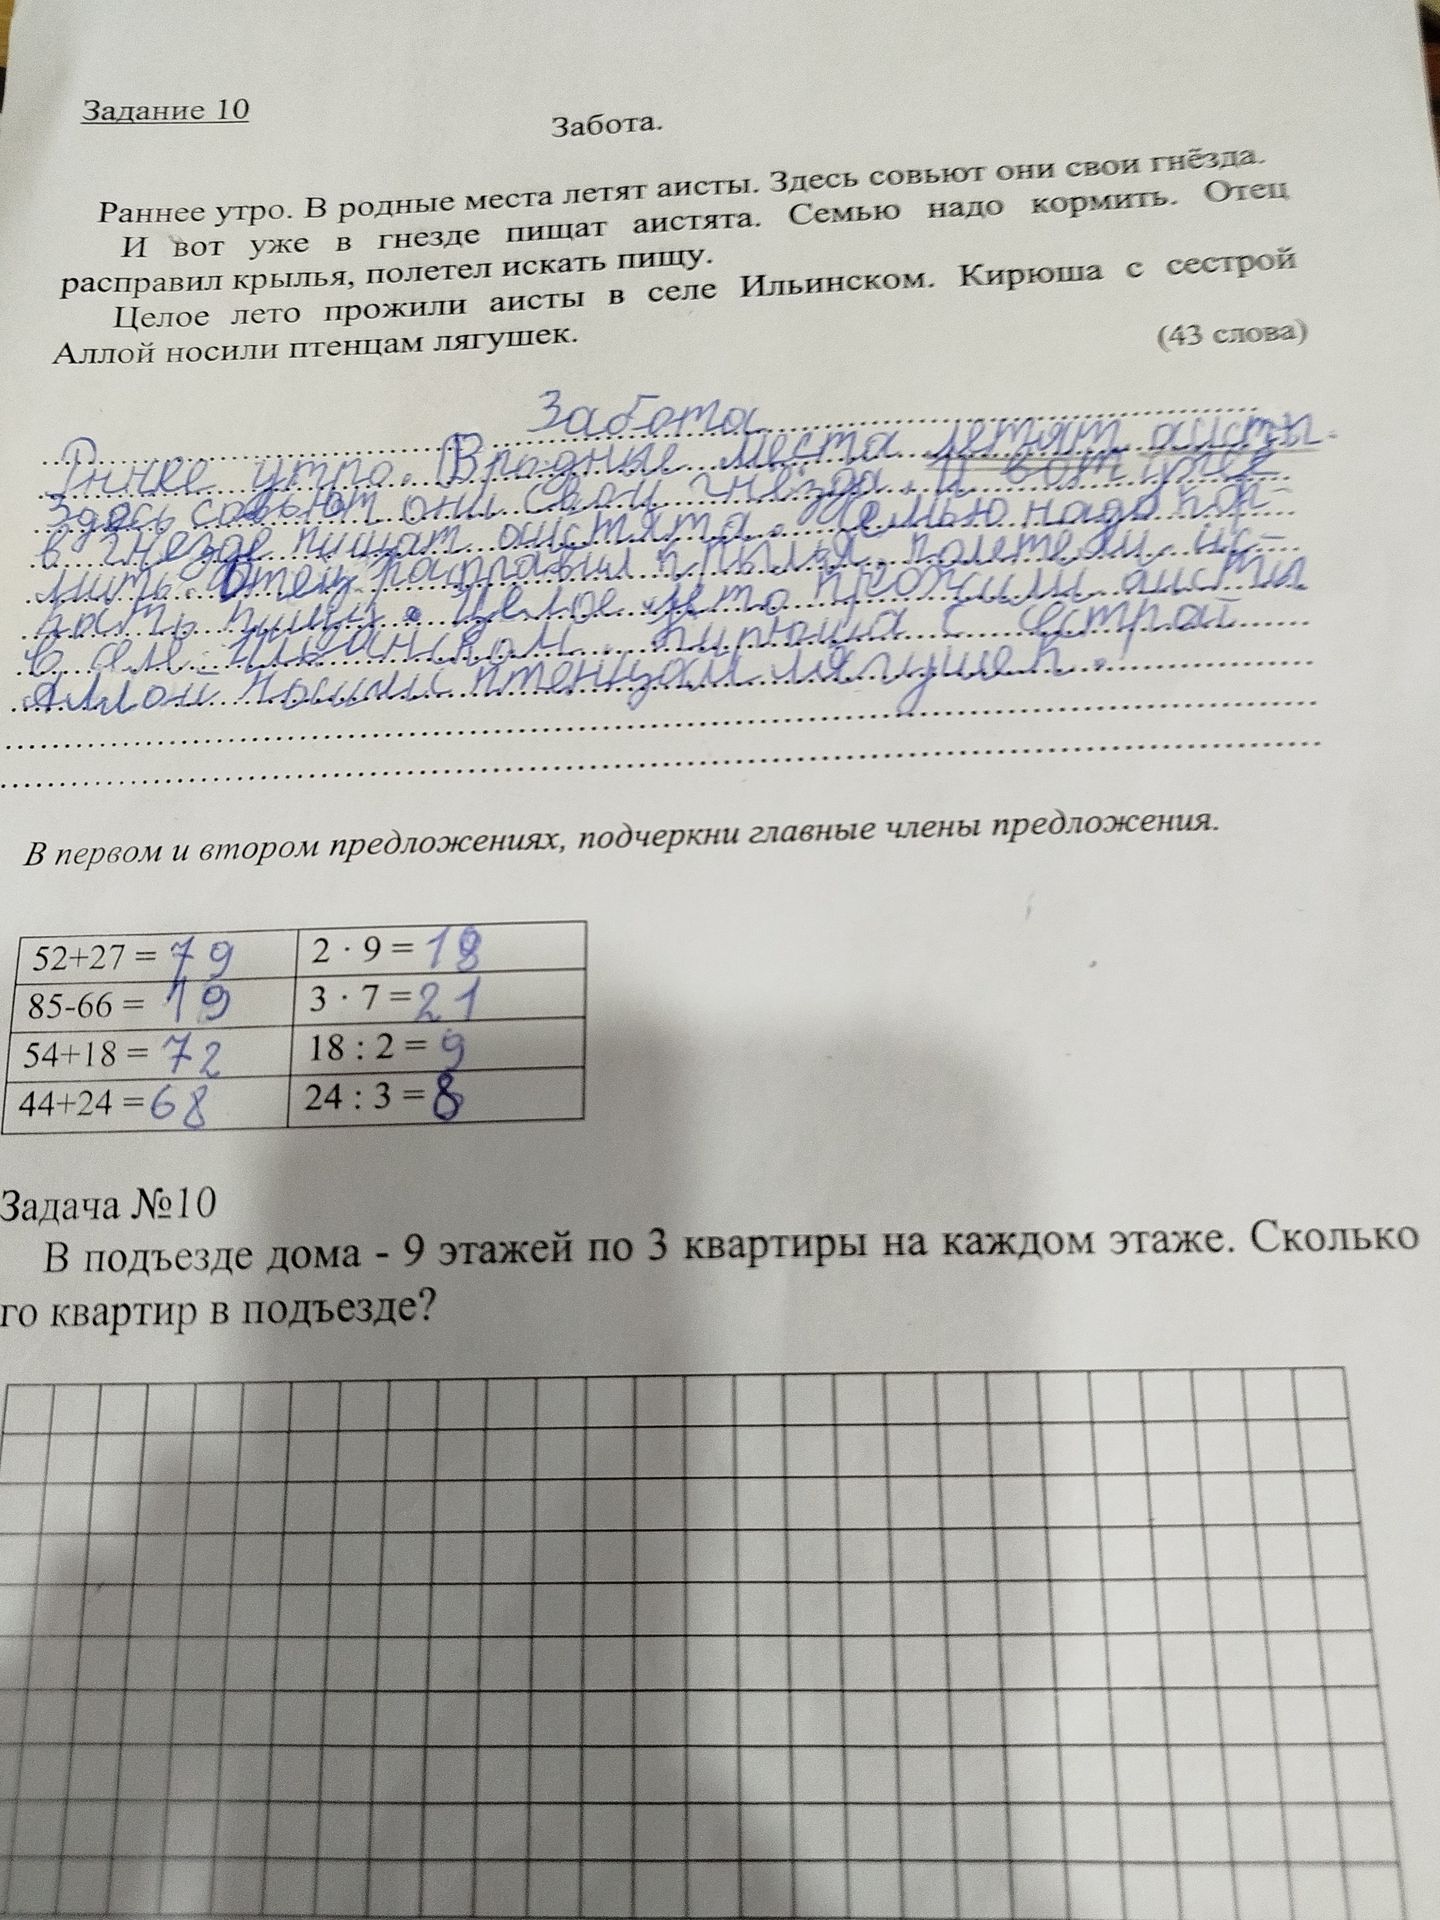 Задание 10
Забота.
Раннее утро. В родные места летят аисты. Здесь совьют они свои гнёзда.
И вот уже в гнезде пищат аистята. Семью надо кормить. Отец
расправил крылья, полетел искать пищу.
Целое лето прожили аисты в селе Ильинском. Кирюша с сестрой
Аллой носили птенцам лягушек.
(43 слова)
Забота
утро. В родные места летят аисты.
Здесь совьют они свои гнёзда. И вот уже
в гнезде пищат аистята. Семью надо кор-
мить. Отец расправил крылья, полетел ис-
кать пищу. Целое лето прожили аисты
в селе Кирюша с сестрай
Аллой носили птенцам лягушек.
В первом и втором предложениях, подчеркни главные члены предложения.
52+27 = 79 2 · 9 = 18
85-66 = 19 3 · 7 = 21
54+18 = 72 18 : 2 = 9
44+24 = 68 24 : 3 = 8
Задача №10
В подъезде дома - 9 этажей по 3 квартиры на каждом этаже. Сколько
го квартир в подъезде?